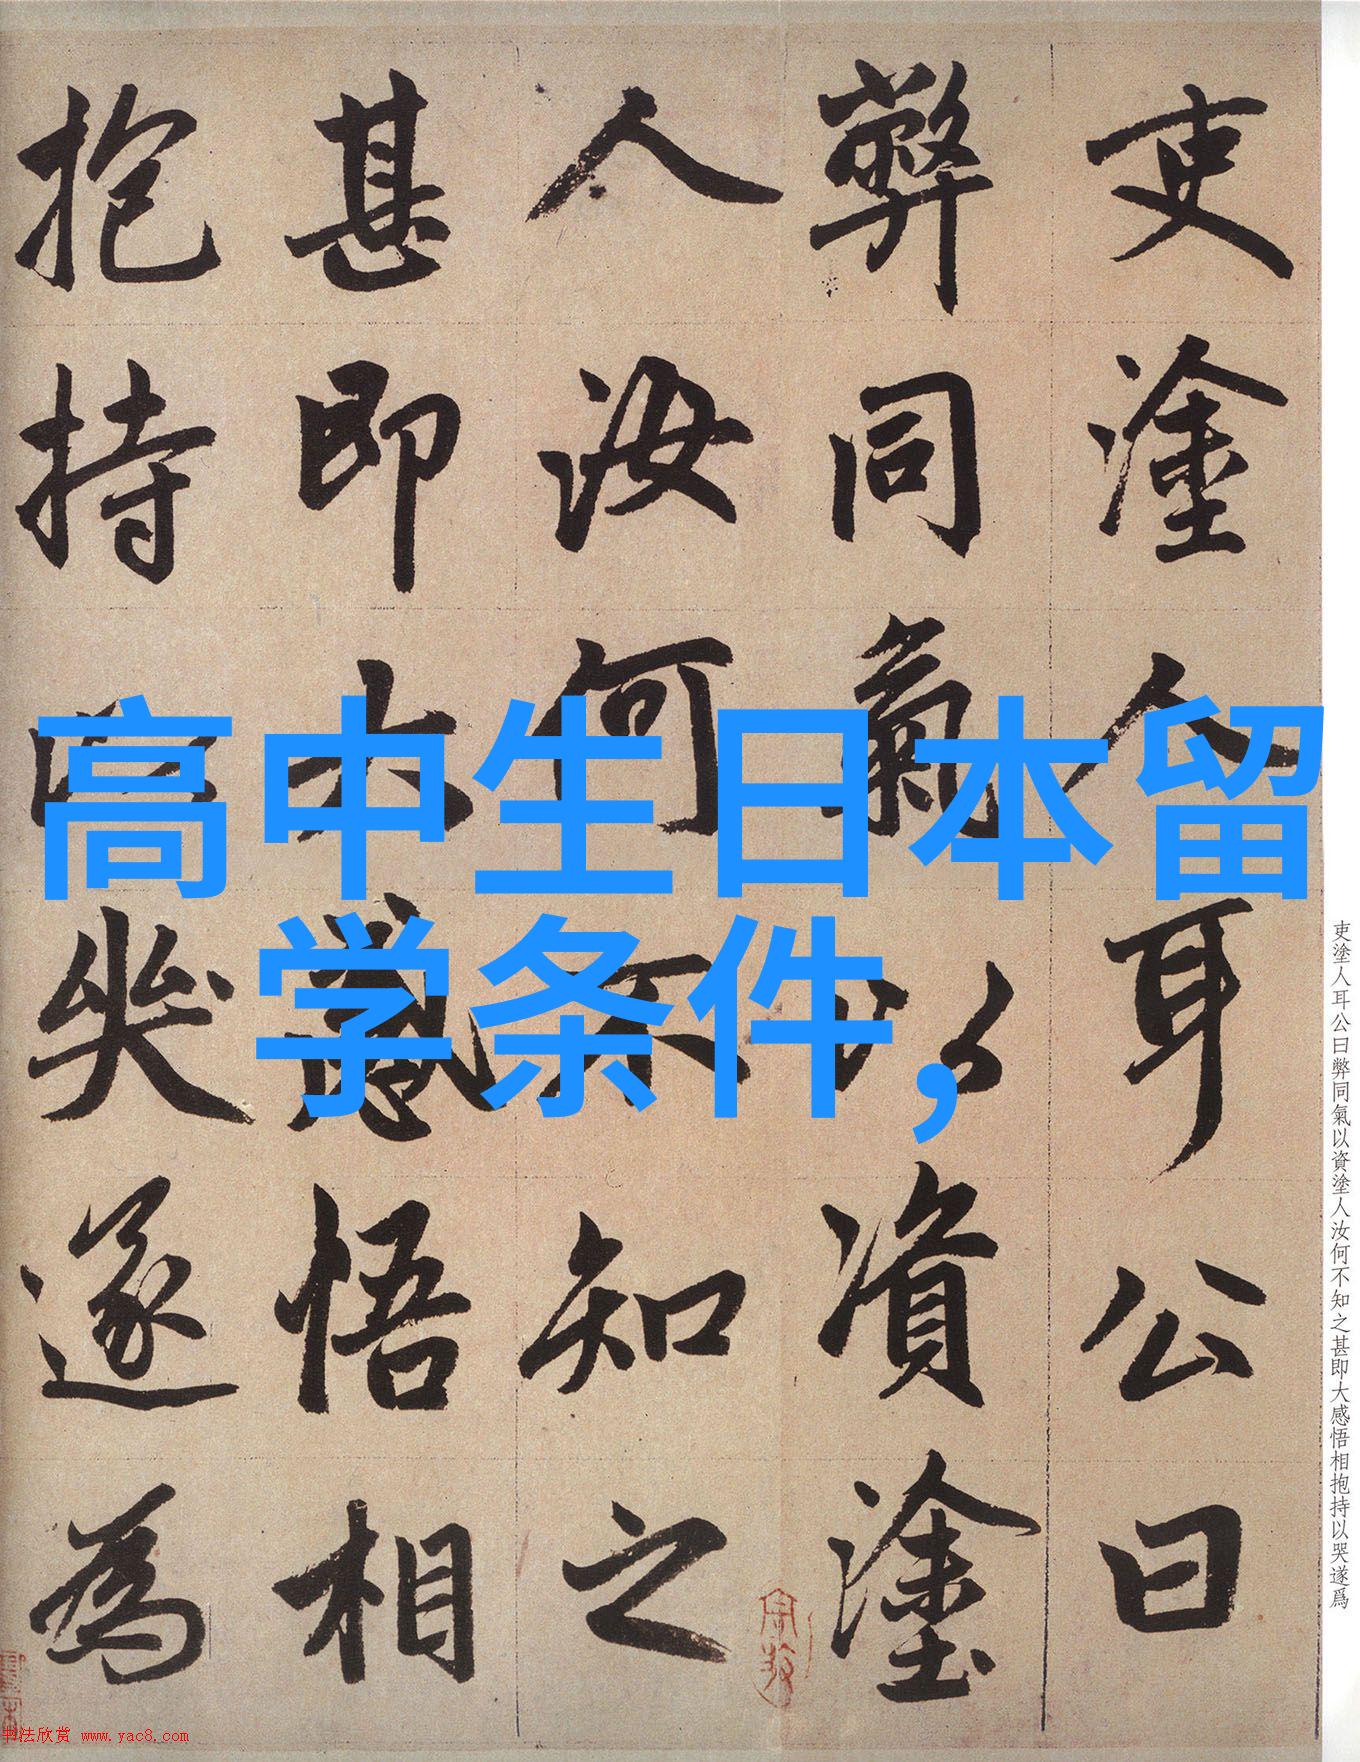 高中生日本留
学条件，
吏塗人耳公曰
弊同氣以資塗
人汝何不知之
甚即大感悟相
抱持以哭遂為
吏塗人耳公曰弊同氣以資塗人汝何不知之甚即大感悟相抱持以哭遂爲
书法欣赏 www.yac8.com